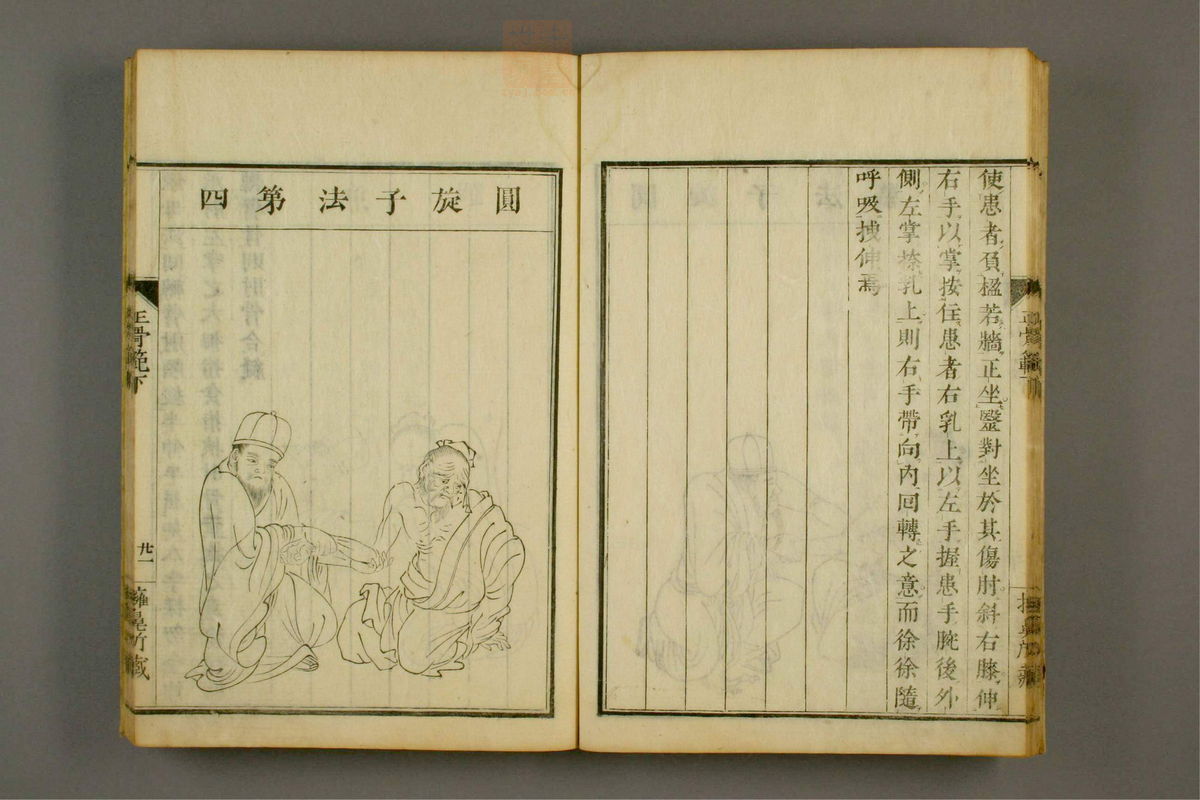 使患者負楹若牆正坐毉對坐於其傷肘斜右膝伸
右手以掌按住患者右乳上以左手握患手腕後外
側左掌捺乳上則右手帶向內回轉之意而徐徐隨
呼吸拽伸焉
正骨範下
圓旋子法第四
正骨範下
廿一